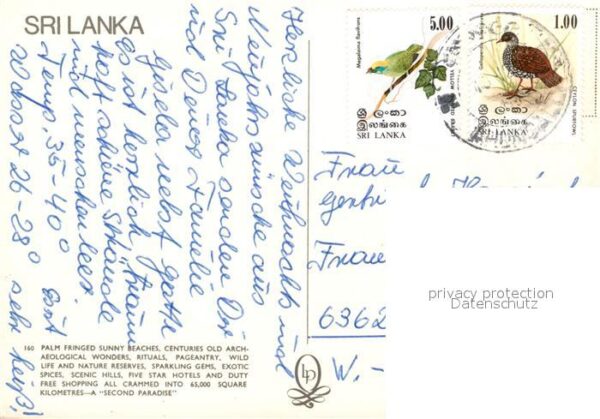 SRI LANKA
Herzliche Weihnachts und
Neujahrswünsche aus
Sri Lanka senden Dir
und Deiner Familie
Gisela nebst Gatte
Es ist herrlich, traum
haft schöne Strände
und menschenleer.
Temp 35-40° dort
Wasser 26-28° sehr heiß!
160 PALM FRINGED SUNNY BEACHES, CENTURIES OLD ARCH-
AEOLOGICAL WONDERS, RITUALS, PAGEANTRY, WILD
LIFE AND NATURE RESERVES, SPARKLING GEMS, EXOTIC
SPICES, SCENIC HILLS, FIVE STAR HOTELS AND DUTY
FREE SHOPPING ALL CRAMMED INTO 65,000 SQUARE
KILOMETRES—A "SECOND PARADISE"
Megalaima flavifrons
5.00
YELLOW
ශ්‍රී ලංකා
இலங்கை
SRI LANKA
1.00
CEYLON SPURFOWL
ශ්‍රී ලංකා
இலங்கை
SRI LANKA
Frau
Frau
6362
W.-
privacy protection
Datenschutz
LP